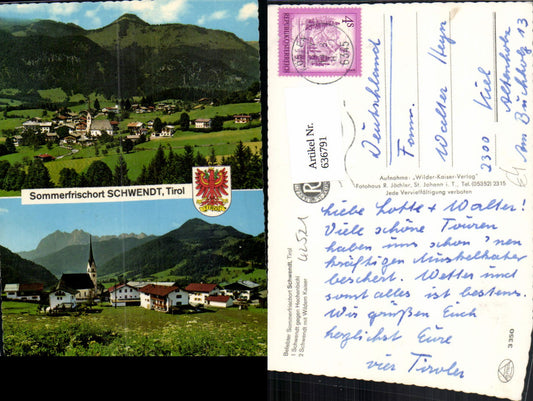 Sommerfrischort SCHWENDT, Tirol
TIROL
4 S
REPUBLIK ÖSTERREICH
6345
Artikel Nr.
636791
Deutschland
Fam.
Walter Heyn
2300 Kiel
Altenholz
Am Buchholz 13
Aufnahme: „Wilder-Kaiser-Verlag"
Fotohaus R. Jöchler, St. Johann i. T., Tel. (05352) 2315
Jede Vervielfältigung verboten
R
Liebe Lotte + Walter!
Viele schöne Touren
haben uns schon 'nen
kräftigen Muskelkater
beschert. Wetter und
sonst alles ist bestens.
Wir grüßen Euch
herzlichst Eure
vier Tiroler
Beliebter Sommerfrischort Schwendt, Tirol
1 Schwendt gegen Heuberg
2 Schwendt mit Wildem Kaiser
3350